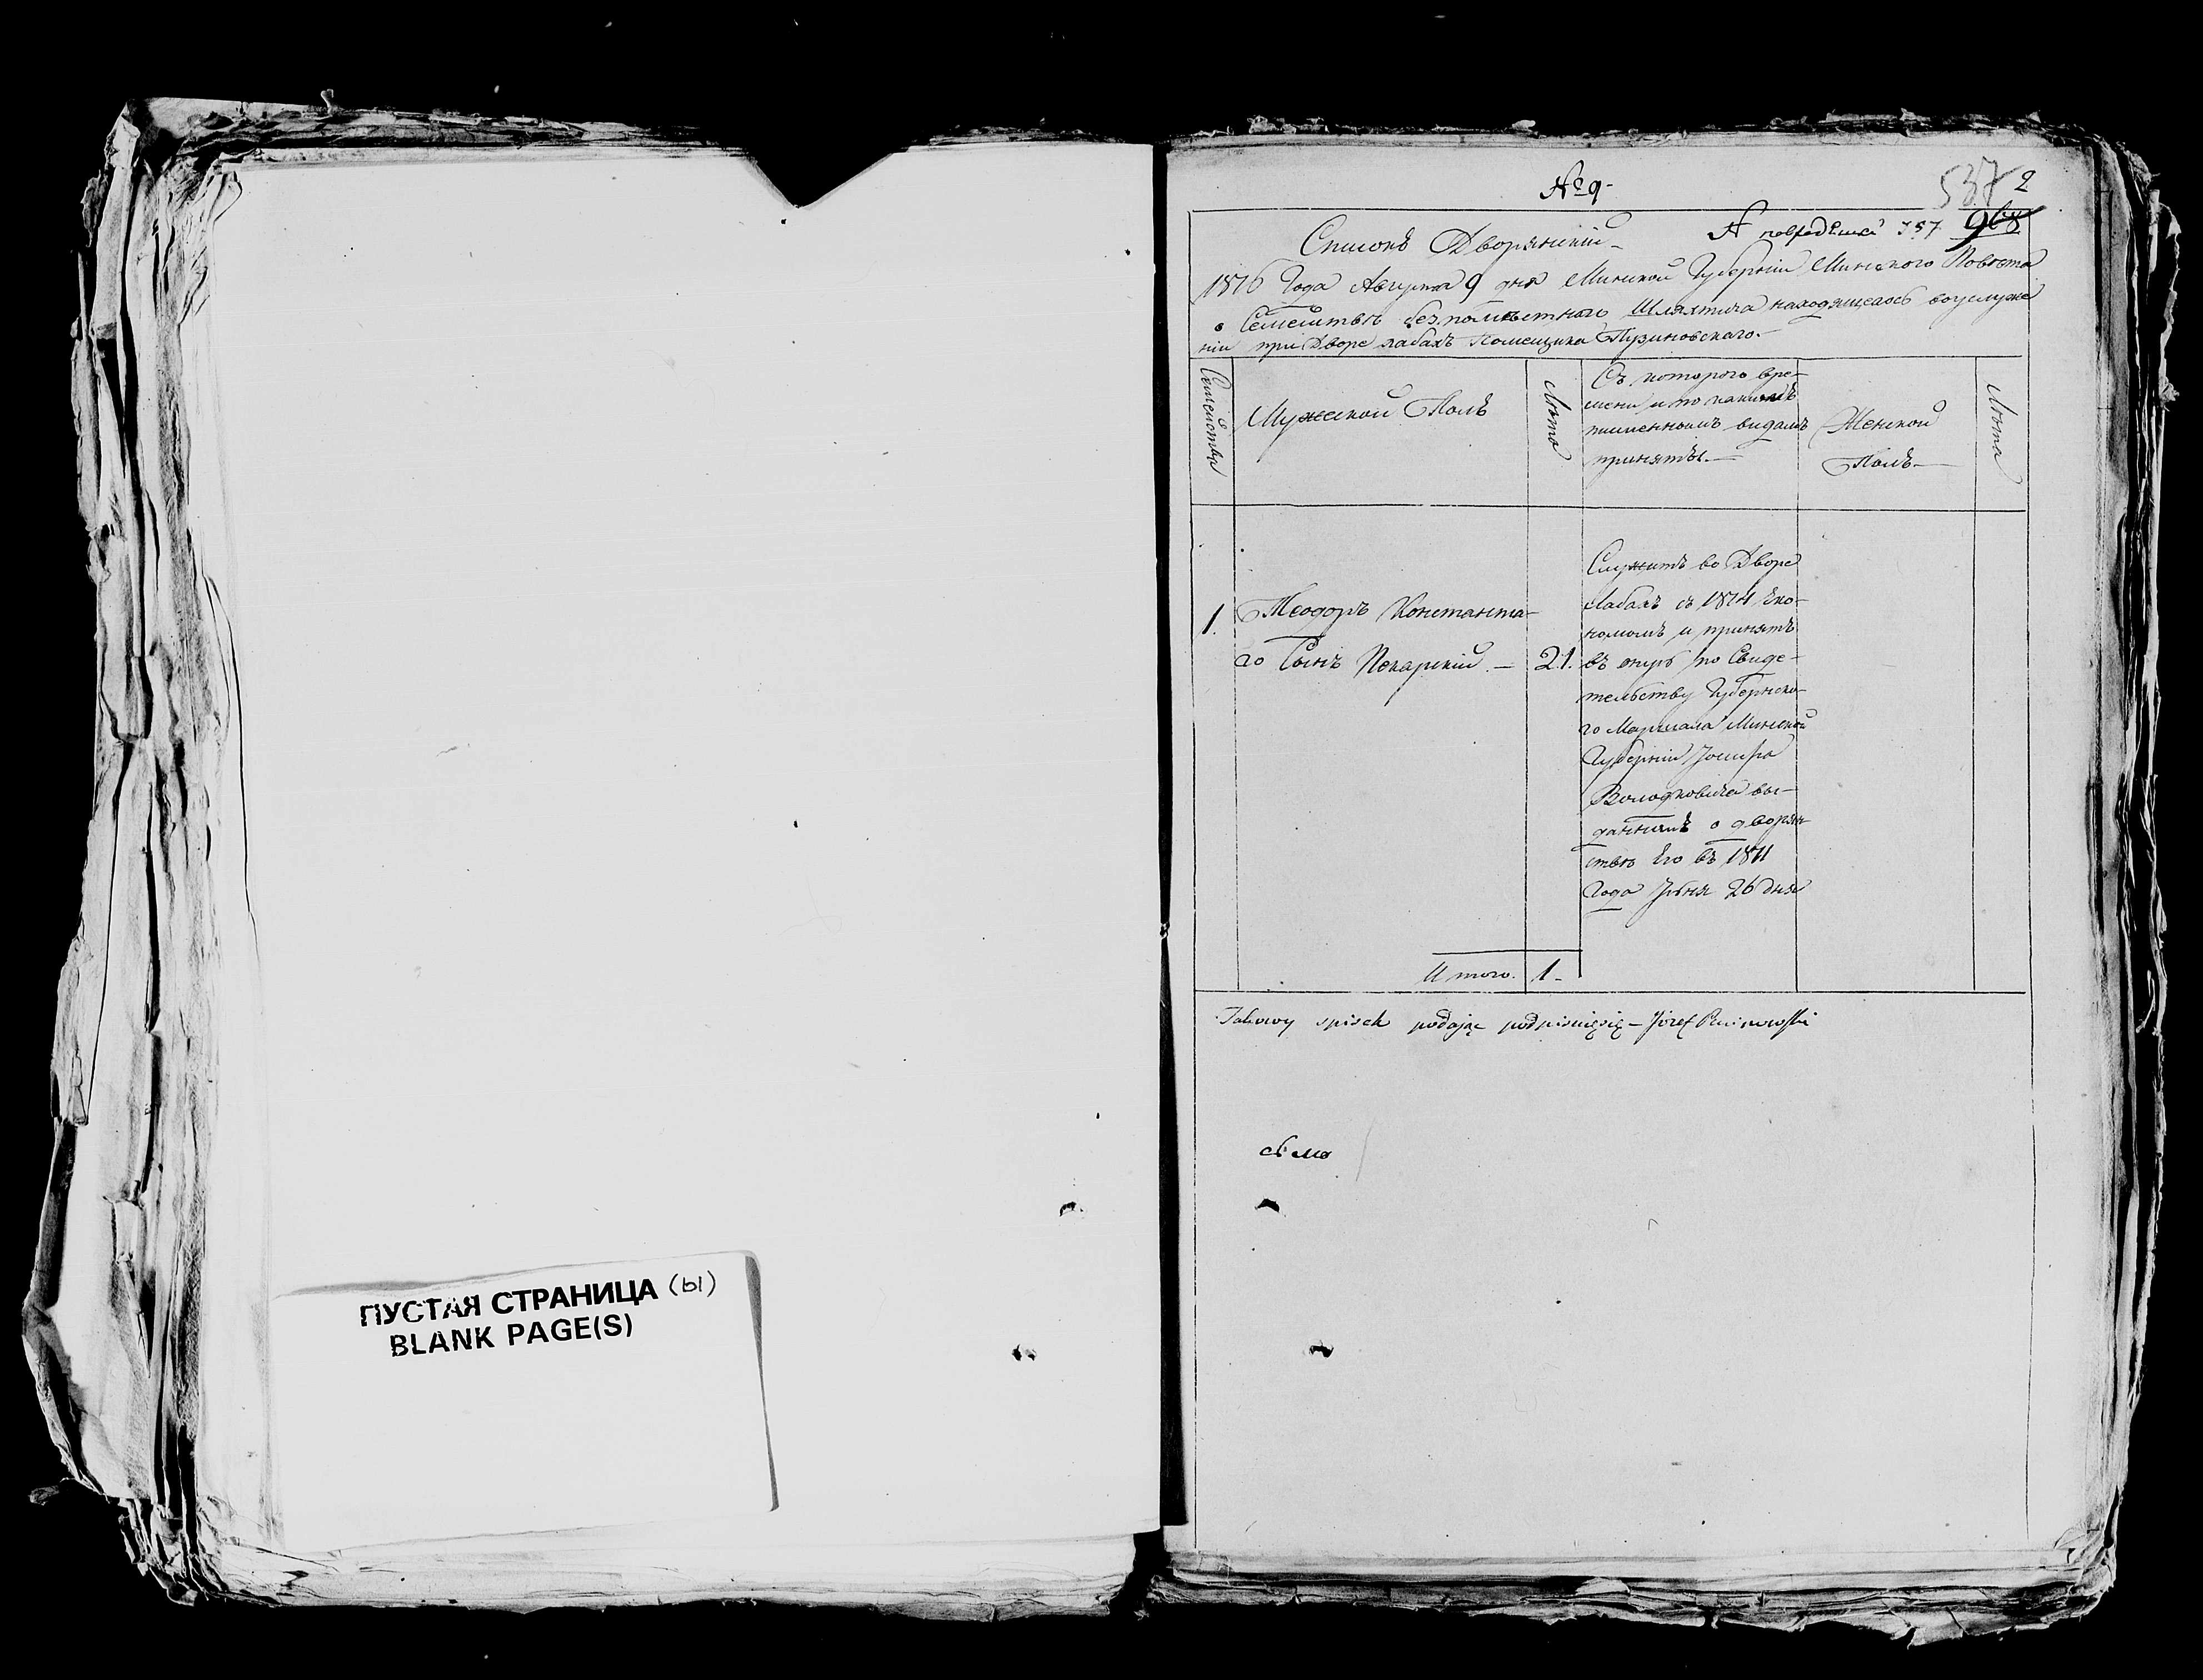 ПУСТАЯ СТРАНИЦА (ы)
BLANK PAGE(S)
№ 9-
537 2
968
Списокъ Дворянскій-
1816 Года Августа 9 дня Минской Губерніи Минского Повѣта
о Семействѣ безпомѣстнаго Шляхтича находящегось воуслуже
ніи при Дворе Лабахъ Помещика Пузиновскаго.-
Семейства
Мужеской Полъ
Лѣта
Съ которого вре-
мени и по какимъ
писменнымъ видамъ
приняты.-
Женской
Полъ-
Лѣта
1.
Теодоръ Константа-
го Сынъ Пекарскій. -
21.
Служитъ во Дворе
Лабахъ съ 1814 Эко-
номомъ и принятъ
въ оную по Свиде-
тельству Губернско-
го Маршала Минской
Губерніи Іосифа
Володковича вы-
даннымъ о дворян-
ствѣ Его въ 1811
Года Іюня 26 дня
Итого. 1-
Takowy spisek podając podpisuięsię - Józef Puzinowski